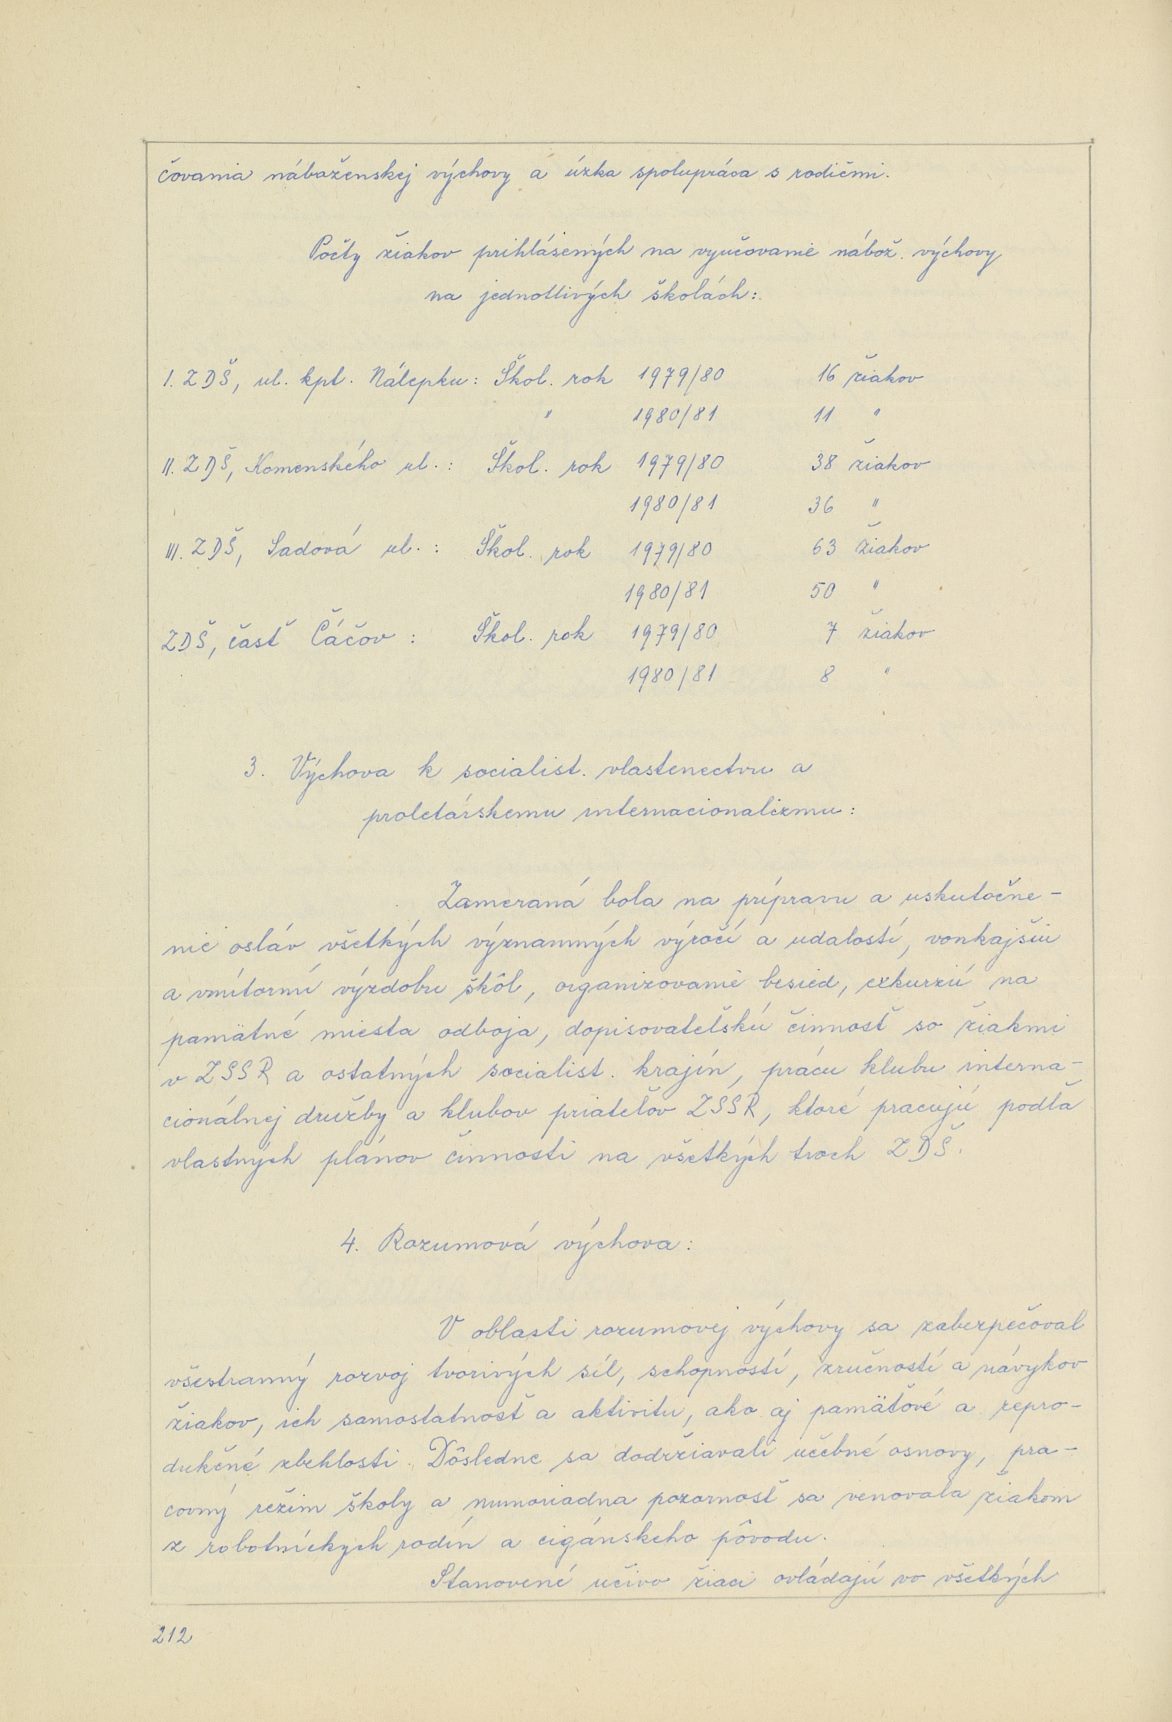 čovania nábaženskej výchovy a úzka spolupráca s rodičmi.
Počty žiakov prihlásených na vyučovanie nábož. výchovy
na jednotlivých školách:
I. ZDŠ, ul. kpt. Nálepku: Škol. rok 1979/80 16 žiakov
" 1980/81 11 "
II. ZDŠ, Komenského ul. : Škol. rok 1979/80 38 žiakov
1980/81 36 "
III. ZDŠ, Sadová ul. : Škol. rok 1979/80 63 žiakov
1980/81 50 "
ZDŠ, časť Čáčov : Škol. rok 1979/80 7 žiakov
1980/81 8 "
3. Výchova k socialist. vlastenectvu a
proletárskemu internacionalizmu:
Zameraná bola na prípravu a uskutočne-
nie osláv všetkých významných výročí a udalostí, vonkajšiu
a vnútornú výzdobu škôl, organizovanie besied, exkurzií na
pamätné miesta odboja, dopisovateľskú činnosť so žiakmi
v ZSSR a ostatných socialist. krajín, prácu klubu interna-
cionálnej družby a klubov priateľov ZSSR, ktoré pracujú podľa
vlastných plánov činnosti na všetkých troch ZDŠ.
4. Rozumová výchova:
V oblasti rozumovej výchovy sa zabezpečoval
všestranný rozvoj tvorivých síl, schopností, zručností a návykov
žiakov, ich samostatnosť a aktivitu, ako aj pamäťové a repro-
dukčné zbehlosti. Dôsledne sa dodržiavali učebné osnovy, pra-
covný režim školy a mimoriadna pozornosť sa venovala žiakom
z robotníckych rodín a cigánskeho pôvodu.
Stanovené učivo žiaci ovládajú vo všetkých
212